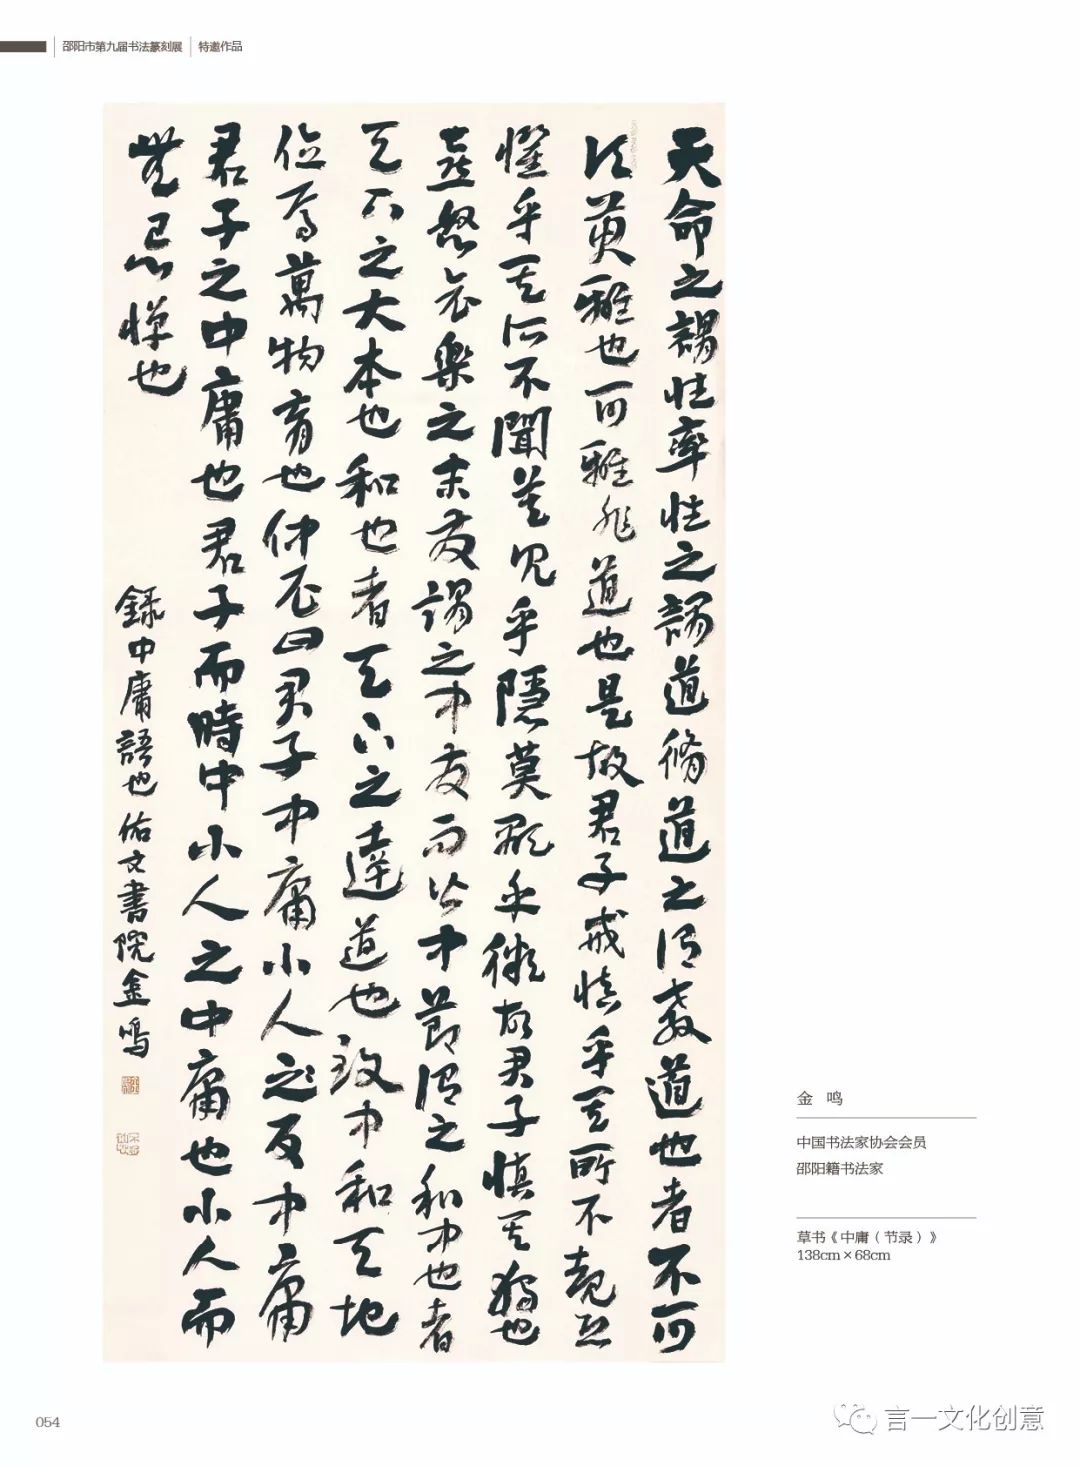 邵阳市第九届书法篆刻展 特邀作品
天命之謂性率性之謂道脩道之謂教道也者不可
須臾離也可離非道也是故君子戒慎乎其所不覩恐
懼乎其所不聞莫見乎隱莫顯乎微故君子慎其獨也
喜怒哀樂之未發謂之中發而皆中節謂之和中也者
天下之大本也和也者天下之達道也致中和天地
位焉萬物育也仲尼曰君子中庸小人之反中庸
君子之中庸也君子而時中小人之中庸也小人而
無忌憚也
録中庸語也佑文書院金鳴
金 鸣
中国书法家协会会员
邵阳籍书法家
草书《中庸（节录）》
138cm×68cm
054
言一文化创意